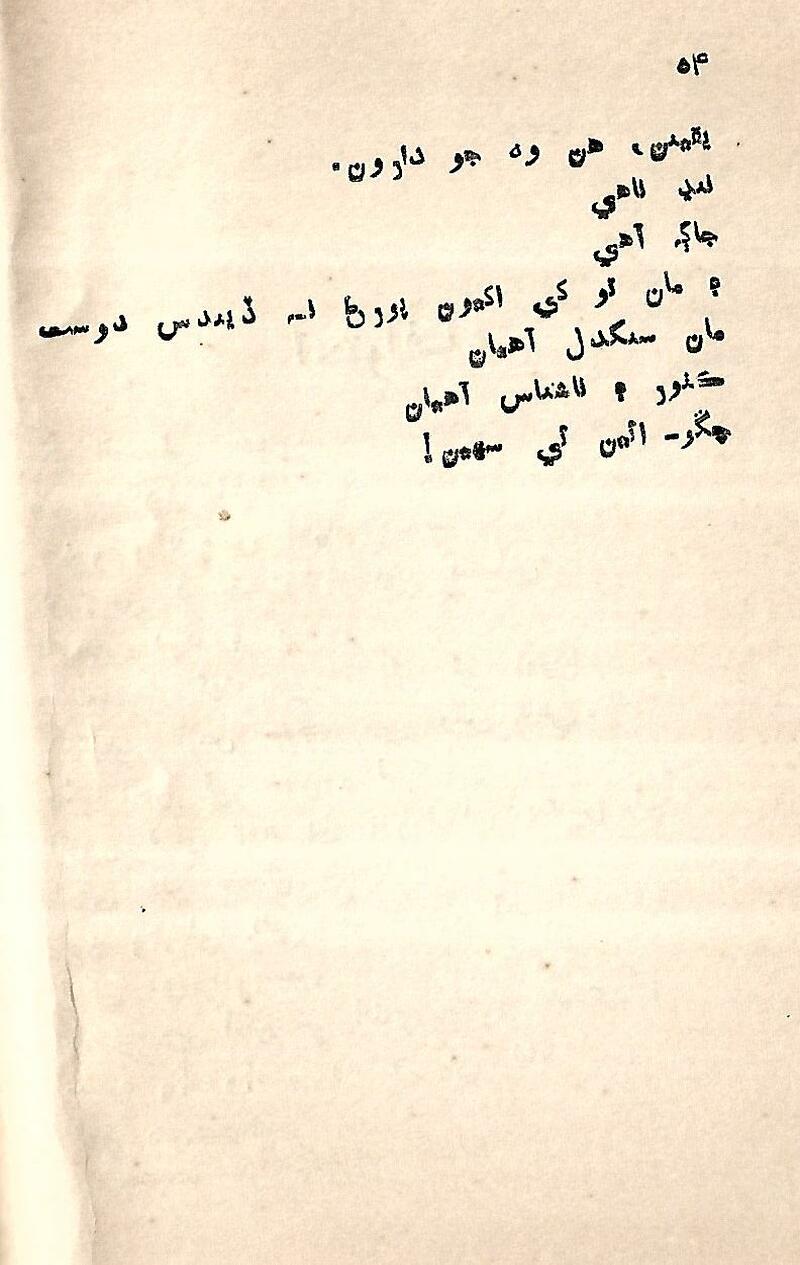 ۵۴
يقينن، هن وه جو دارون.
ننڊ ناهي
جاڳ آهي
۽ مان تو کي اکيون ٻورڻ نہ ڏيندس دوست
مان سنگدل آهيان
ڪٺور ۽ ناشناس آهيان
چڱو- ائين ئي سهين!